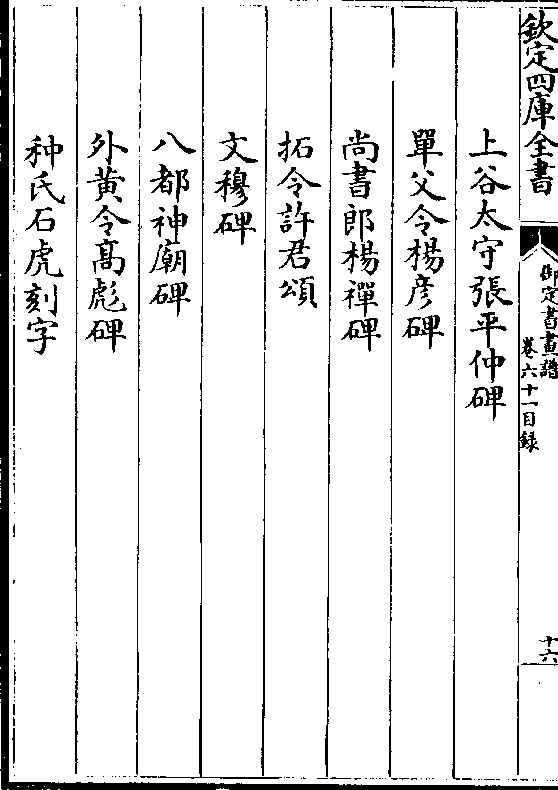 欽定四庫全書
御定書畫譜
卷六十一目録
十六
上谷太守張平仲碑
單父令楊彦碑
尚書郎楊襌碑
拓令許君頌
文穆碑
八都神廟碑
外黄令髙彪碑
种氏石虎刻字